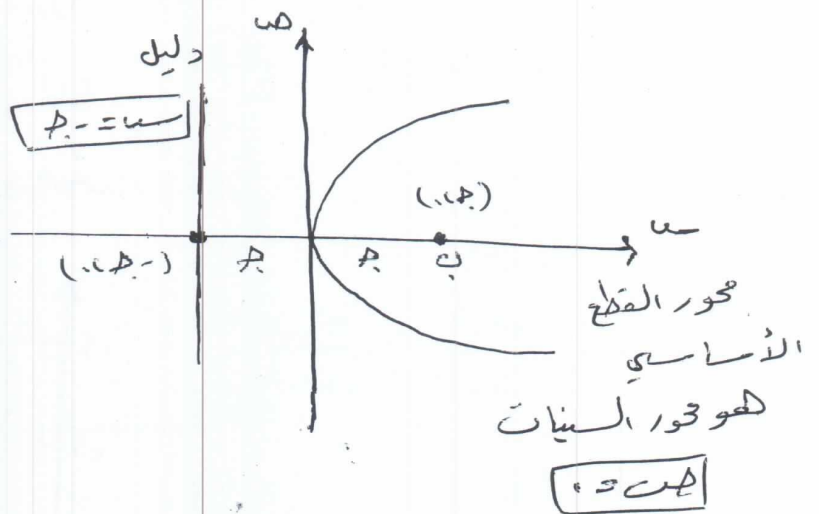 ص
دليل
س = -جـ
(جـ ، ٠)
س
(-جـ ، ٠)
جـ
جـ
ب
محور القطع
الأساسي
هو محور السينات
ص = ٠